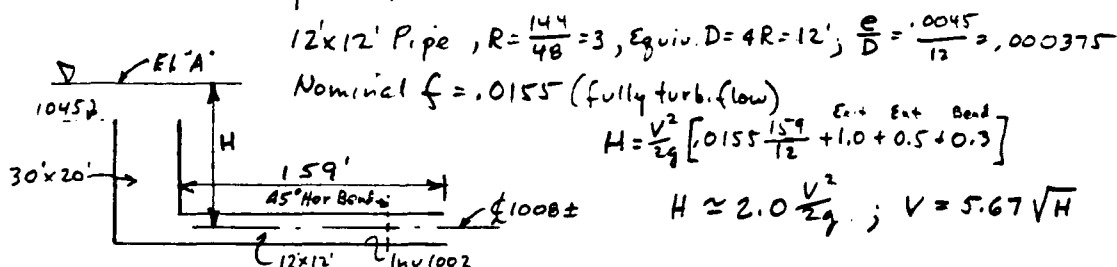 12'x12' Pipe , R = 144/48 = 3 , Equiv. D = 4R = 12' ; e/D = .0045/12 = .000375
Nominal f = .0155 (fully turb. flow)
Exit Ent Bend
H = V²/2g [.0155 159/12 + 1.0 + 0.5 + 0.3]
H ≃ 2.0 V²/2g ; V = 5.67 √H
El "A"
1045±
H
30'x20'
159'
45° Hor Bend
℄ 1008 ±
12'x12'
Inv 1002